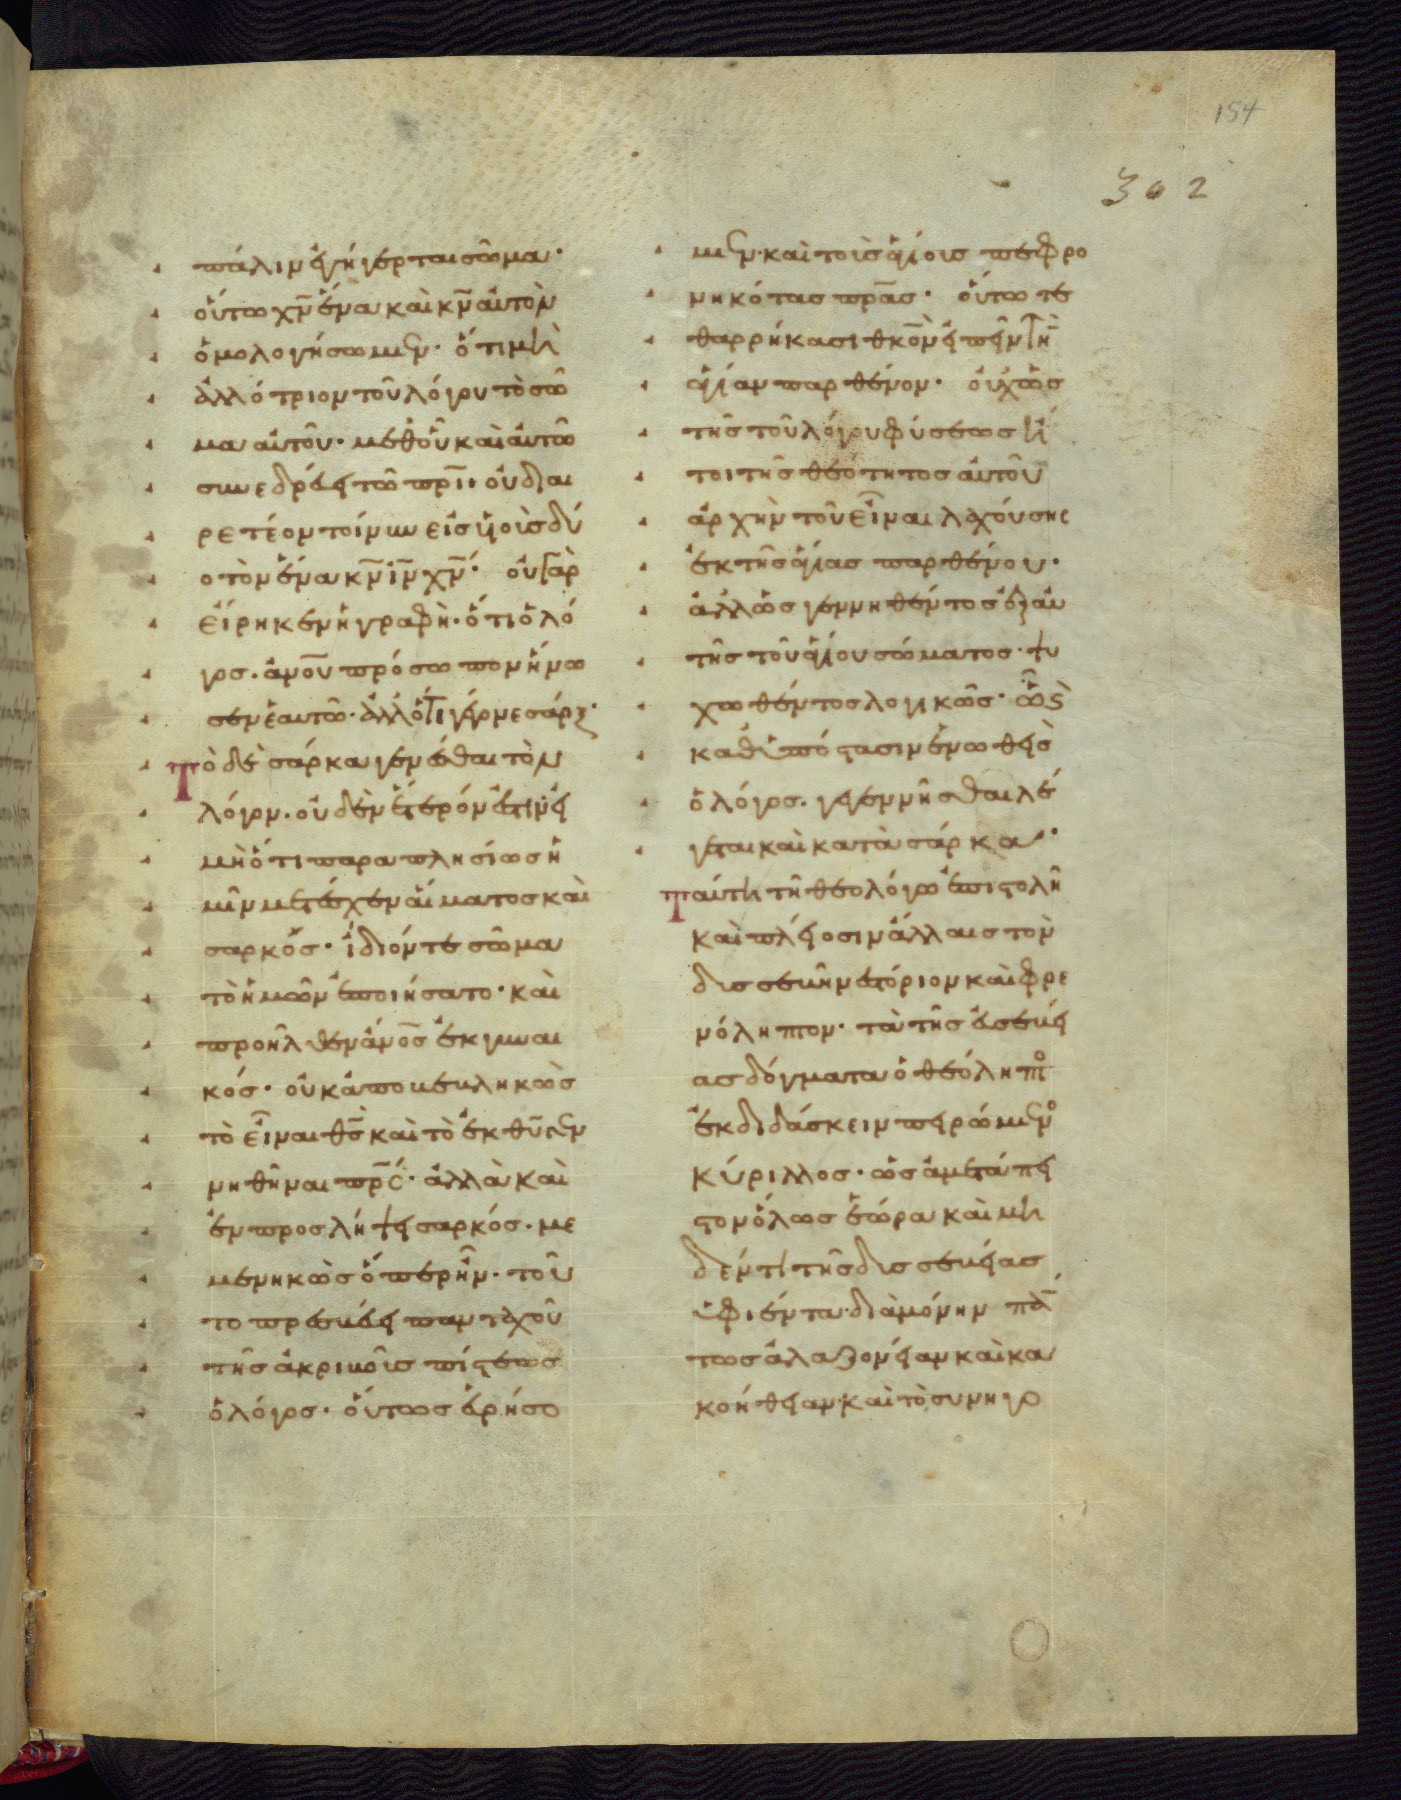 154
302
πάλιν ἐγήγερται σῶμα·
οὕτω χν̄ ἕνα καὶ κν̄ αὐτὸν
ὁμολογήσωμεν· ὅτι μὴ
ἀλλότριον τοῦ λόγου τὸ σῶ
μα αὐτοῦ· μεθ' οὗ καὶ αὐτῶ
συνεδρεύει τῶ πρ̄ι· οὐ διαι
ρετέον τοίνυν εἰς υἱοὺς δύ
ο τὸν ἕνα κν̄ ιν̄ χν̄· οὐ γὰρ
εἴρηκεν ἡ γραφὴ· ὅτι ὁ λό
γος· ἀνο̄υ πρόσωπον ἥνω
σεν ἑαυτῶ· ἀλλ' ὅτι γέγονε σάρξ·
Τὸ δὲ σάρκα γενέσθαι τὸν
λόγον· οὐδὲν ἕτερόν ἐστιν εἰ
μὴ ὅτι παραπλησίως ἡ
μῖν μετέσχεν αἵματος καὶ
σαρκὸς· ἴδιόν τε σῶμα
τὸ ἡμῶν ἐποιήσατο· καὶ
προῆλθεν ἀνο̄ς ἐκ γυναι
κός· οὐκ ἀποβεβληκὼς
τὸ εἶναι θς̄ καὶ τὸ ἐκ θῡ γεν
νηθῆναι πρ̄ς· ἀλλὰ καὶ
ἐν προσλήψει σαρκός· με
μενηκὼς ὅπερ ἦν· τοῦ
το πρεσβεύει πανταχοῦ
τῆς ἀκριβοῦς πίστεως
ὁ λόγος· οὕτως εὑρήσο
μεν· καὶ τοὺς ἁγίους πεφρο
νηκότας πρ̄ας· οὕτω τε
θαρρήκασι θκο̄ν εἰπεῖν τὴν
ἁγίαν παρθένον· οὐχ ὡς
τῆς τοῦ λόγου φύσεως ἤ
τοι τῆς θεότητος αὐτοῦ
ἀρχὴν τοῦ εἶναι λαχούσης
ἐκ τῆς ἁγίας παρθένου·
ἀλλ' ὡς γεννηθέντος ἐξ αὐ
τῆς τοῦ ἁγίου σώματος· ψυ
χωθέντος λογικῶς· ὧ καὶ
καθ' ὑπόστασιν ἑνωθεὶς
ὁ λόγος· γεγεννῆσθαι λέ
γεται καὶ κατὰ σάρκα·
Ταύτη τῆ θεολόγω ἐπιστολῆ
καὶ πλείοσιν ἄλλαις τὸν
δυσσεβῆ νεστόριον καὶ φρε
νόληπτον· τὰ τῆς εὐσεβεί
ας δόγματα ὁ θεόληπτο
ἐκδιδάσκειν πειρώμενο
κύριλλος· ὡς ἀμετάπει
στον ὅλως ἑώρα καὶ μη
δέν τι τῆς δυσσεβείας
ὑφιέντα· διὰ μόνην πάν
τως ἀλαζονείαν καὶ κα
κοήθειαν· καὶ τὸ συνηγο